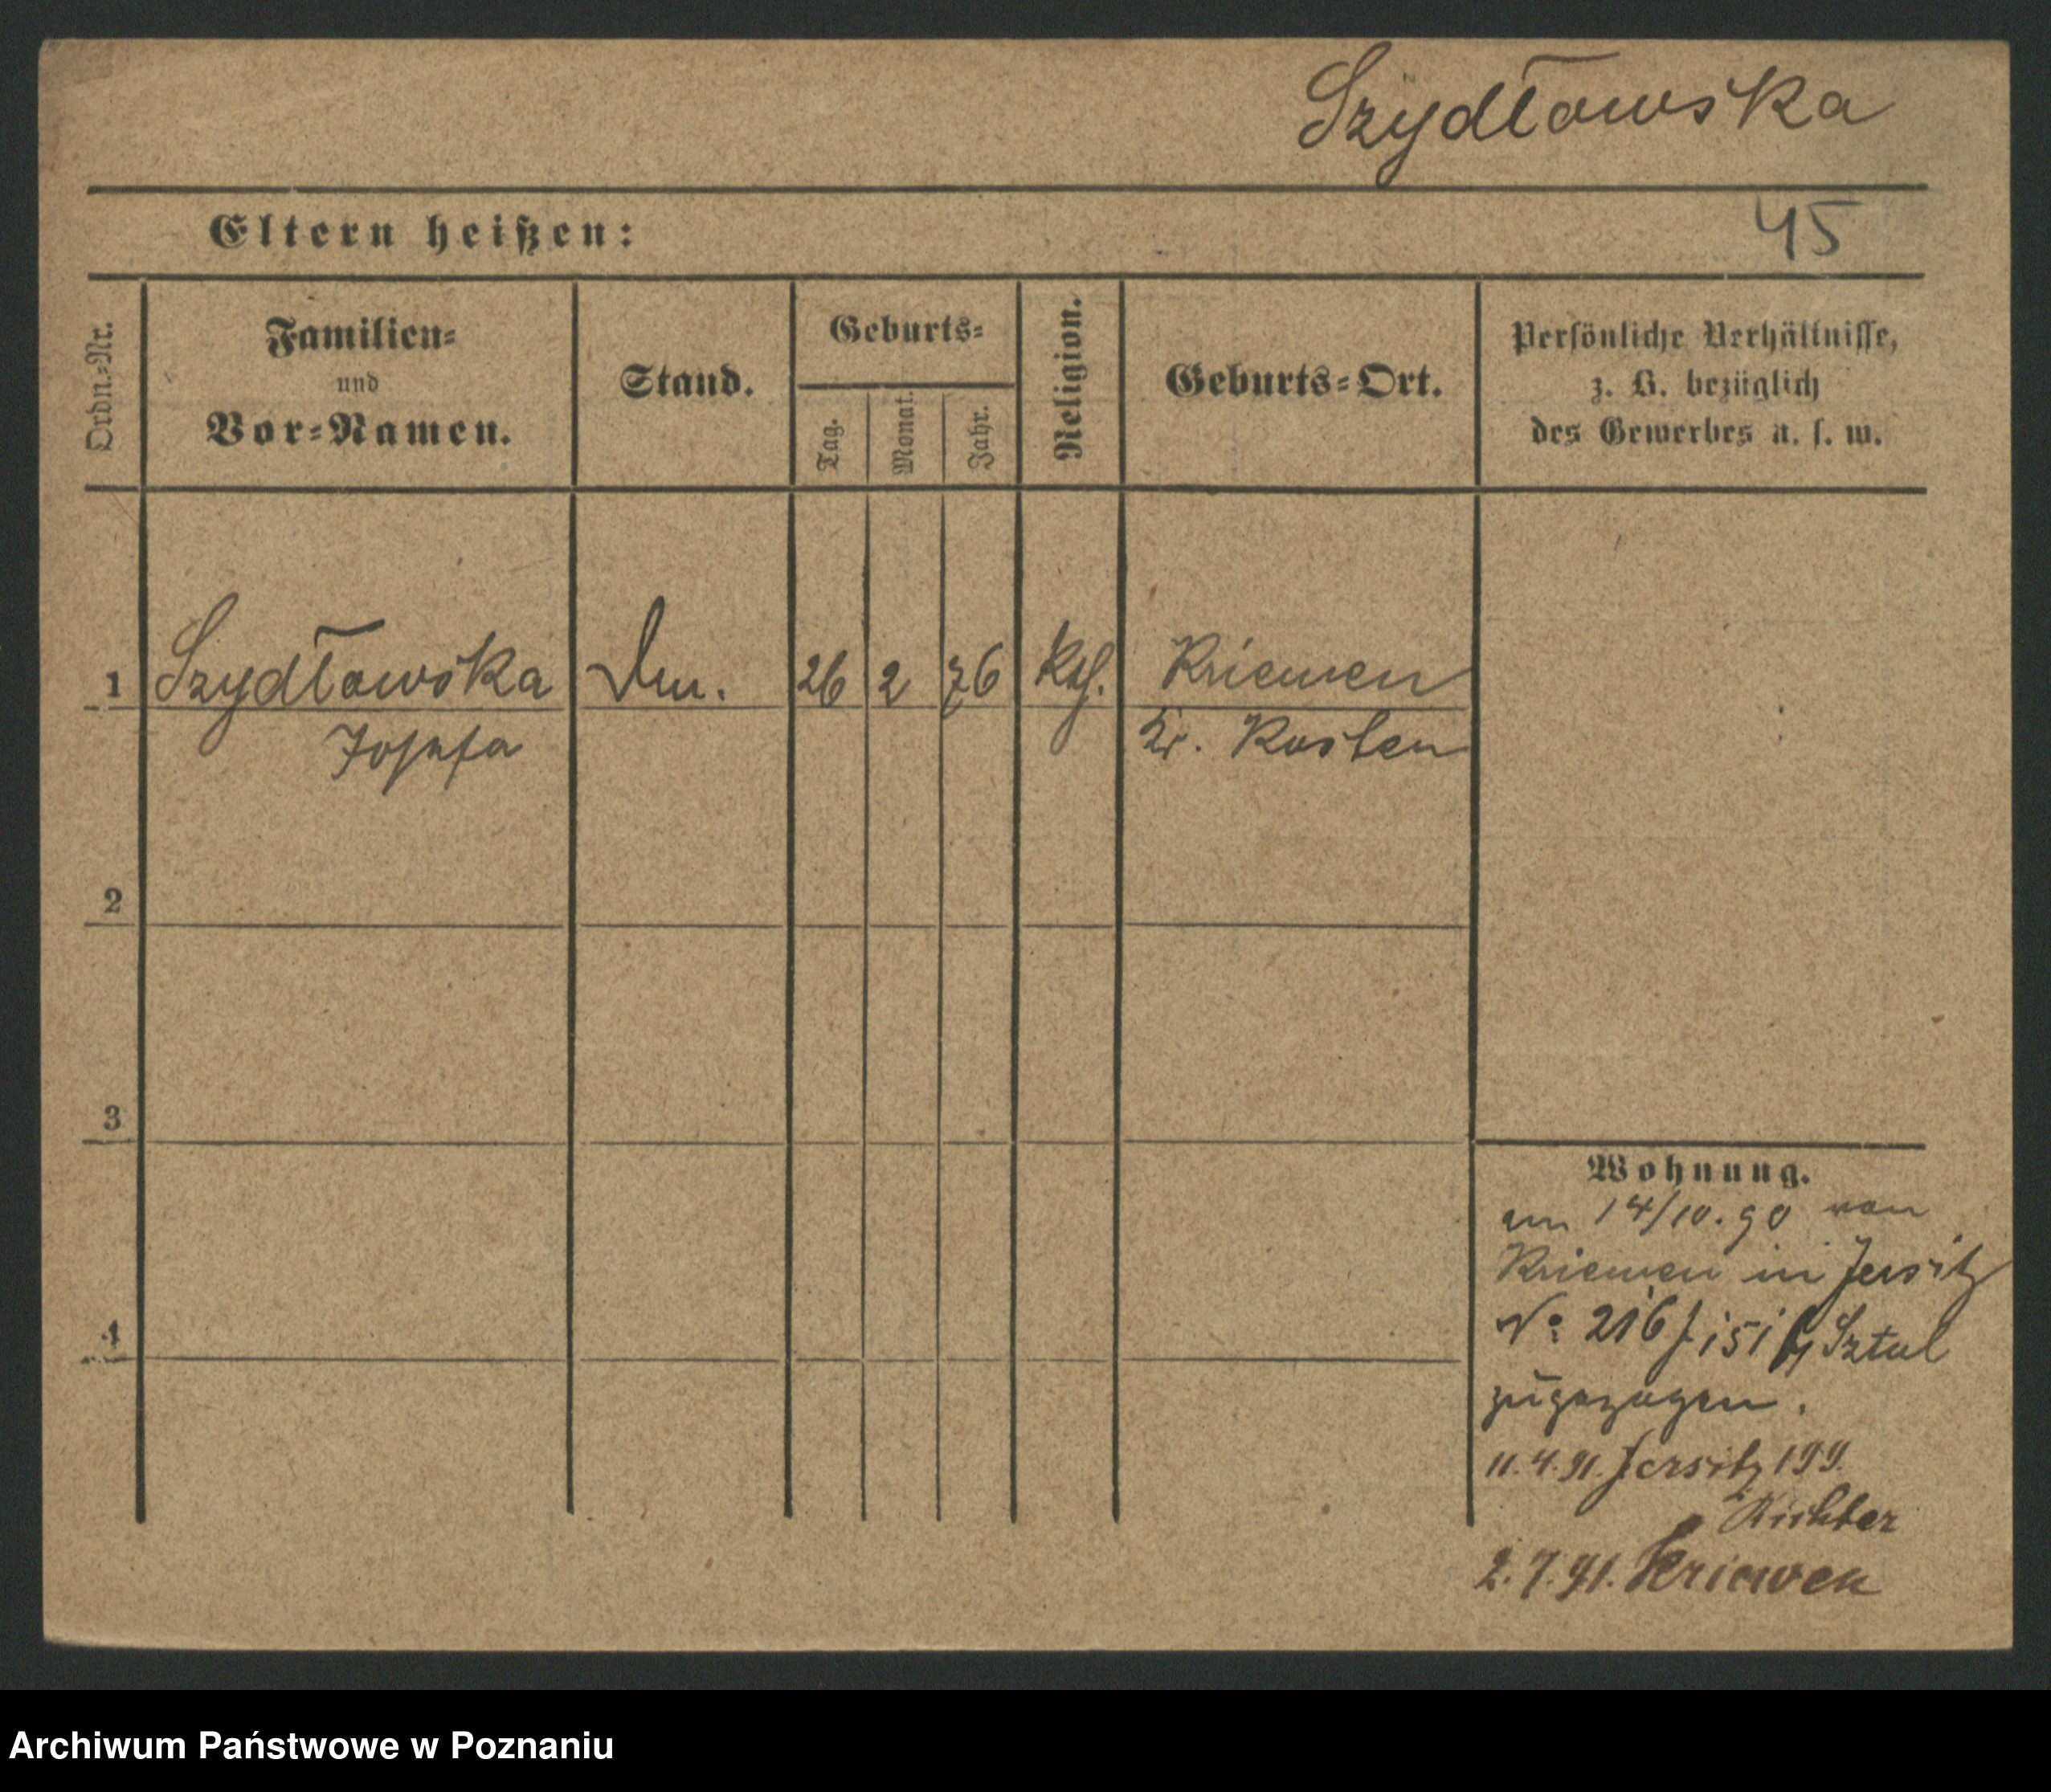 Szydłowska
45
Eltern heißen:
Ordn.-Nr.
Familien-
und
Vor-Namen.
Stand.
Geburts-
Tag.
Monat.
Jahr.
Religion.
Geburts-Ort.
Persönliche Verhältnisse,
z. B. bezüglich
des Gewerbes u. s. w.
1 Szydłowska 26 2 76 kth. Kriewen
Josefa Kr. Kosten
2
3
4
Wohnung.
am 14/10.90 von
Kriewen in Jersitz
No 216 Sztul
zugezogen.
11.4.91. Jersitz 199.
Richter
2.7.91. Kriewen
Archiwum Państwowe w Poznaniu